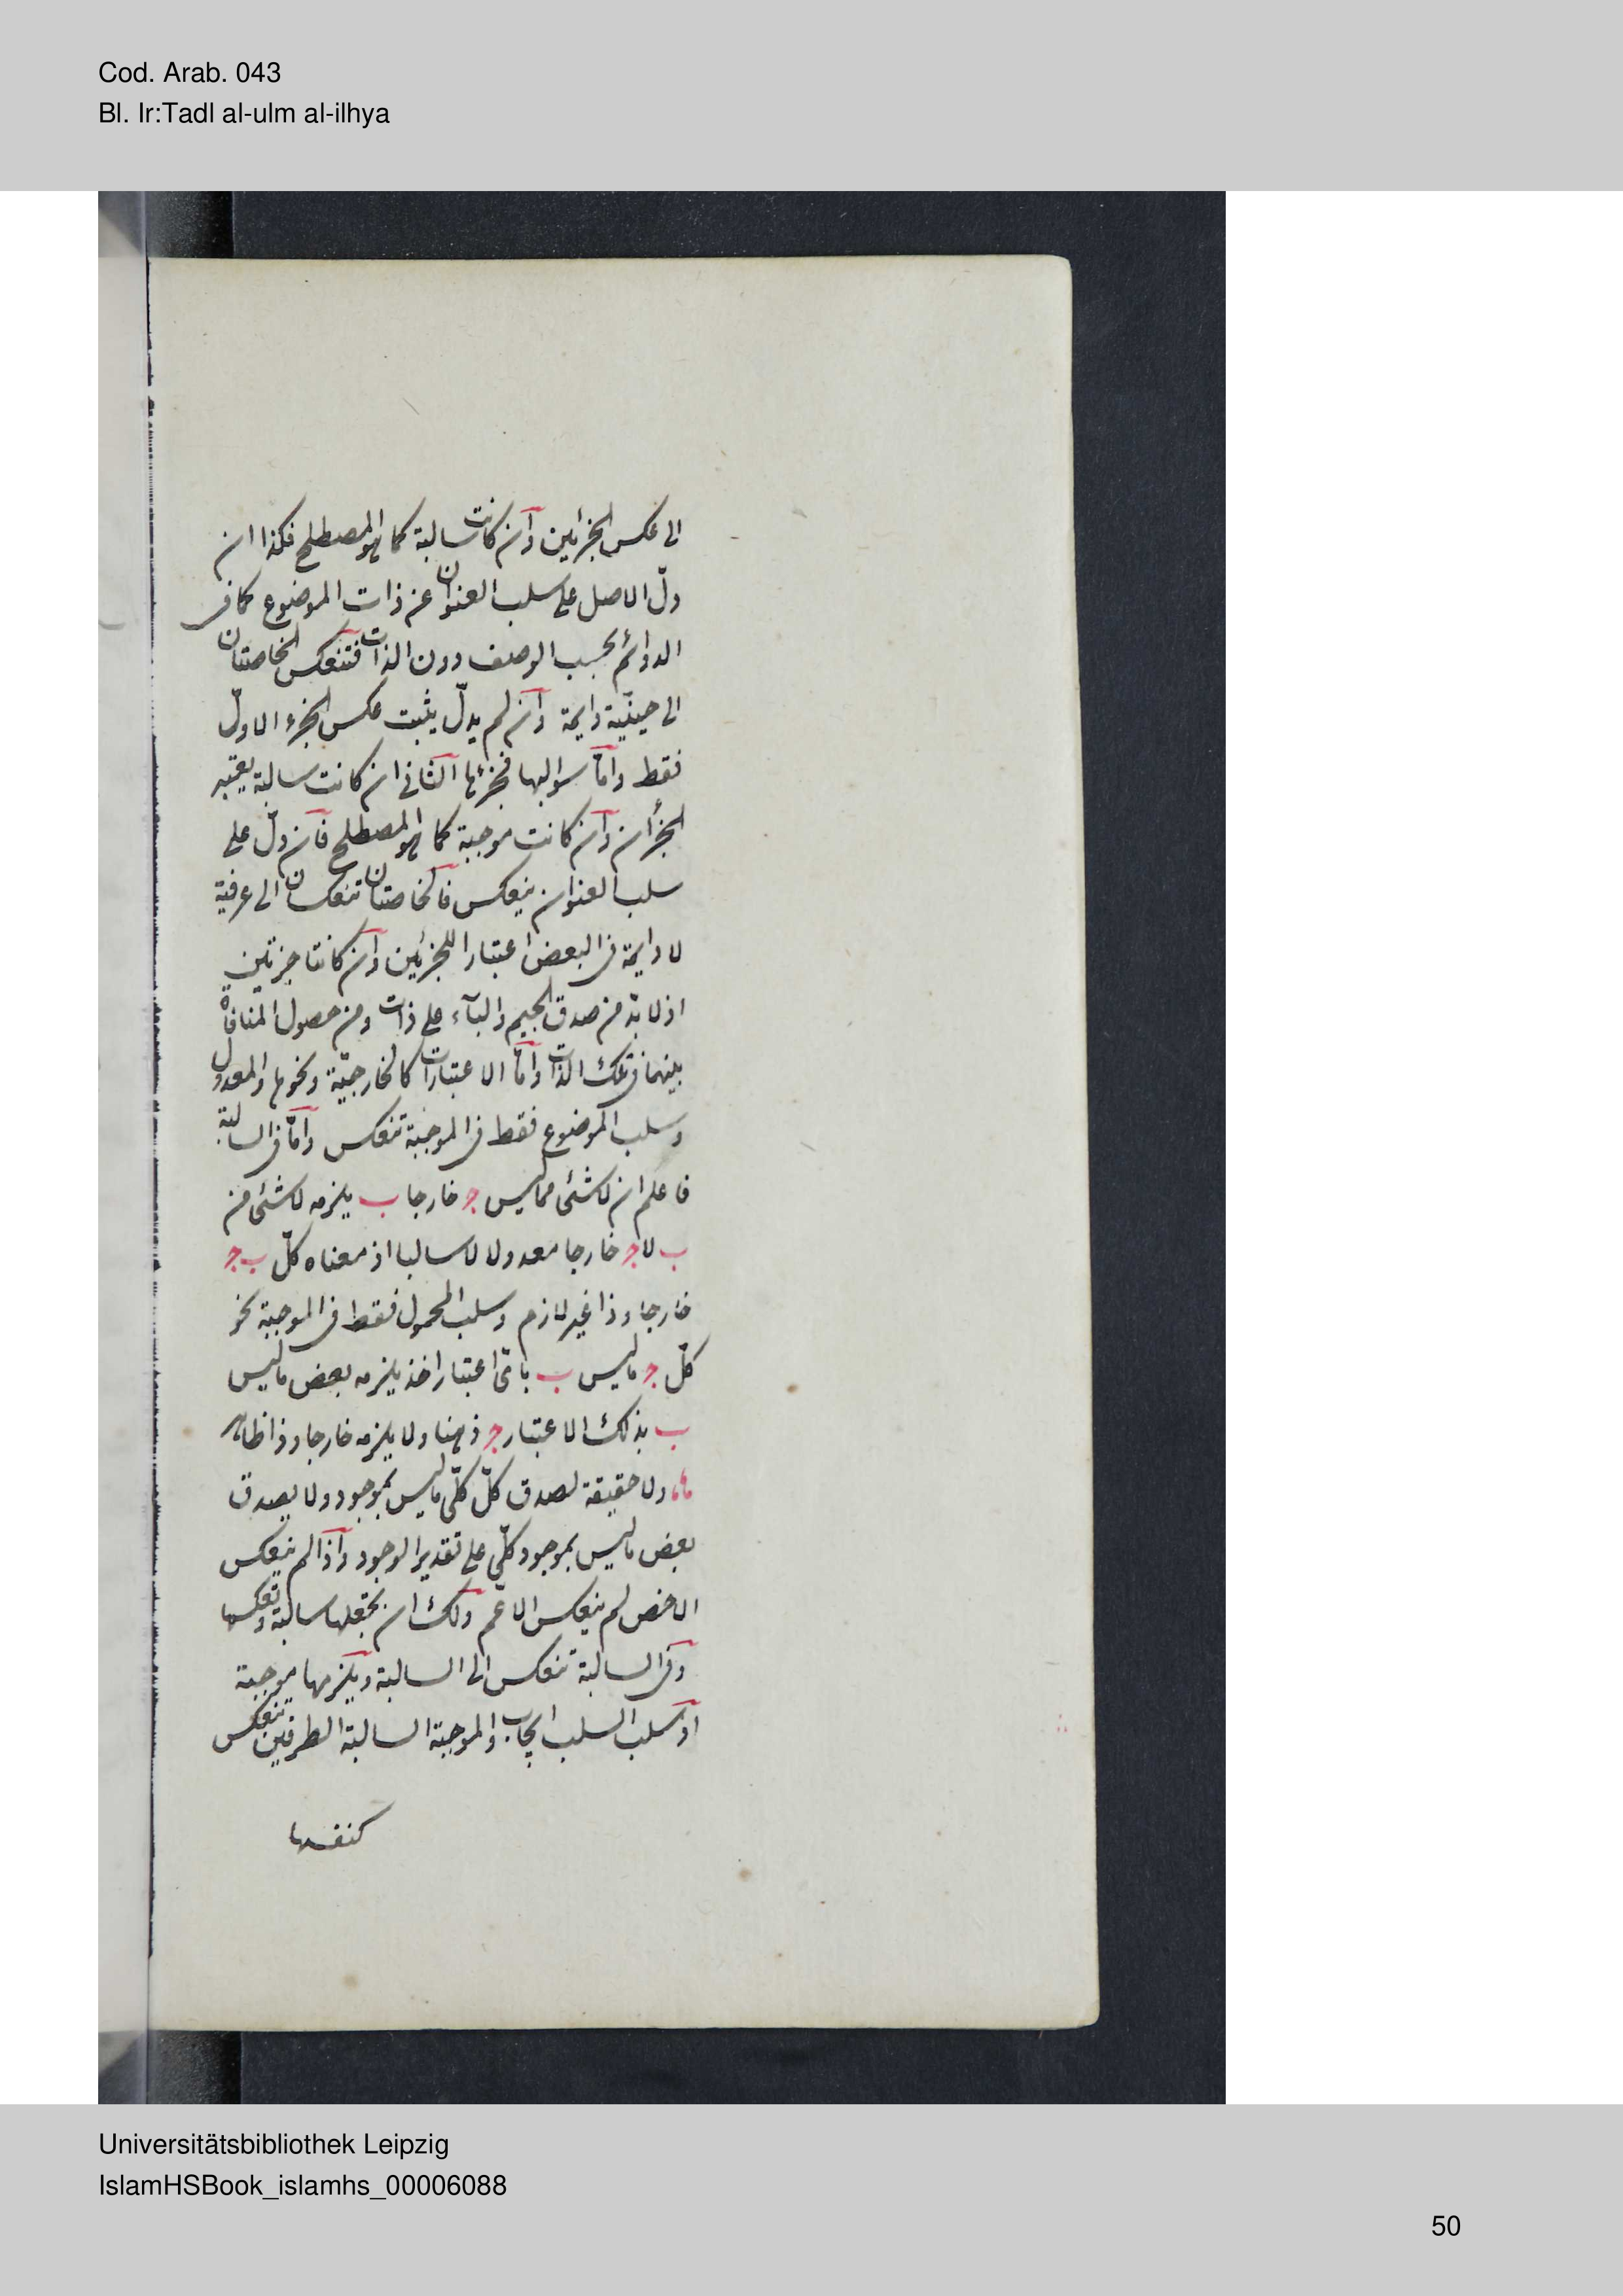 Cod. Arab. 043
Bl. Ir:Tadl al-ulm al-ilhya
الى عكس الجزئين وان كانت سالبة كما هو المصطلح فكذا ان
دلّ الاصل على سلب العنوان عن ذات الموضوع كما فى
الدوائم بحسب الوصف دون الذات فتنعكس الخاصتان
الى حينيّة دايمة وان لم يدلّ يثبت عكس الجزء الاول
فقط وامّا سوالبها فجزءها الثانى ان كانت سالبة يعتبر
الجزءان وان كانت موجبة كما هو المصطلح فان دلّ على
سلب العنوان ينعكس فالخاصتان تنعكسان الى عرفية
لا دايمة فى البعض اعتبارا للجزئين وان كانتا جزئيتين
اذ لا بدّ من صدق الجيم والباء على ذات ومن حصول المنافاة
بينهما فى تلك الذات وامّا الاعتبارات كالخارجيّة ونحوها والمعدول
وسلب الموضوع فقط فى الموجبة تنعكس وامّا فى السالبة
فاعلم ان لا شئ مما ليس ج خارجا ب يلزمه لا شئ من
ب لا ج خارجا معدولا لا سالبا اذ معناه كلّ ب ج
خارجا وذا غير لازم وسلب المحمول فقط فى الموجبة نحو
كلّ ج ما ليس ب باىّ اعتبار اخذ يلزمه بعض ما ليس
ب بذلك الاعتبار ج ذهنا ولا يلزمه خارجا وذا ظاهر
ولا حقيقة لصدق كلّ كلّى ما ليس بموجود ولا يصدق
بعض ما ليس بموجود كلّى على تقدير الوجود واذا لم ينعكس
الاخص لم ينعكس الاعم ولك ان تجعلها سالبة وتعكسها
وفى السالبة تنعكس الى السالبة ويلزمها موجبة
اذ سلب السلب ايجاب والموجبة السالبة الطرفين تنعكس
كنفسها
Universitätsbibliothek Leipzig
IslamHSBook_islamhs_00006088
50